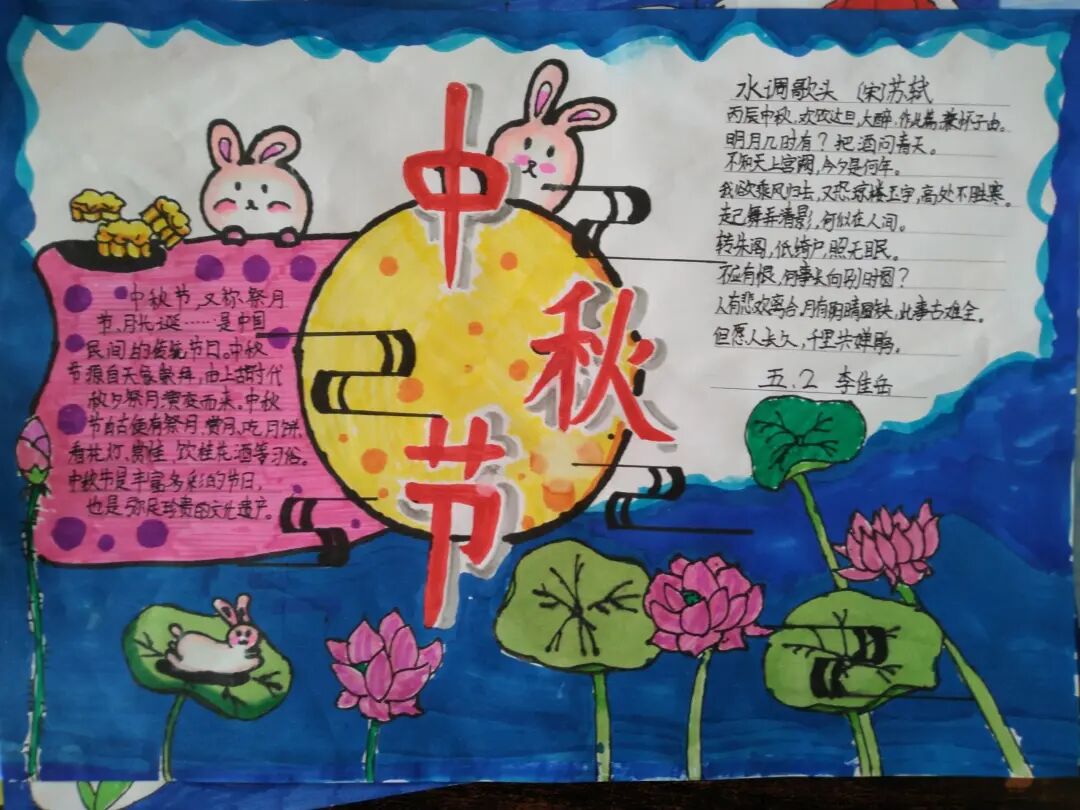 中秋节
中秋节,又称祭月
节、月光诞……是中国
民间的传统节日。中秋
节源自天象崇拜,由上古时代
秋夕祭月演变而来。中秋
节自古便有祭月、赏月、吃月饼、
看花灯、赏桂、饮桂花酒等习俗。
中秋节是丰富多彩的节日,
也是弥足珍贵的文化遗产。
水调歌头 (宋)苏轼
丙辰中秋,欢饮达旦,大醉,作此篇,兼怀子由。
明月几时有?把酒问青天。
不知天上宫阙,今夕是何年。
我欲乘风归去,又恐琼楼玉宇,高处不胜寒。
起舞弄清影,何似在人间。
转朱阁,低绮户,照无眠。
不应有恨,何事长向别时圆?
人有悲欢离合,月有阴晴圆缺,此事古难全。
但愿人长久,千里共婵娟。
五.2 李佳岳